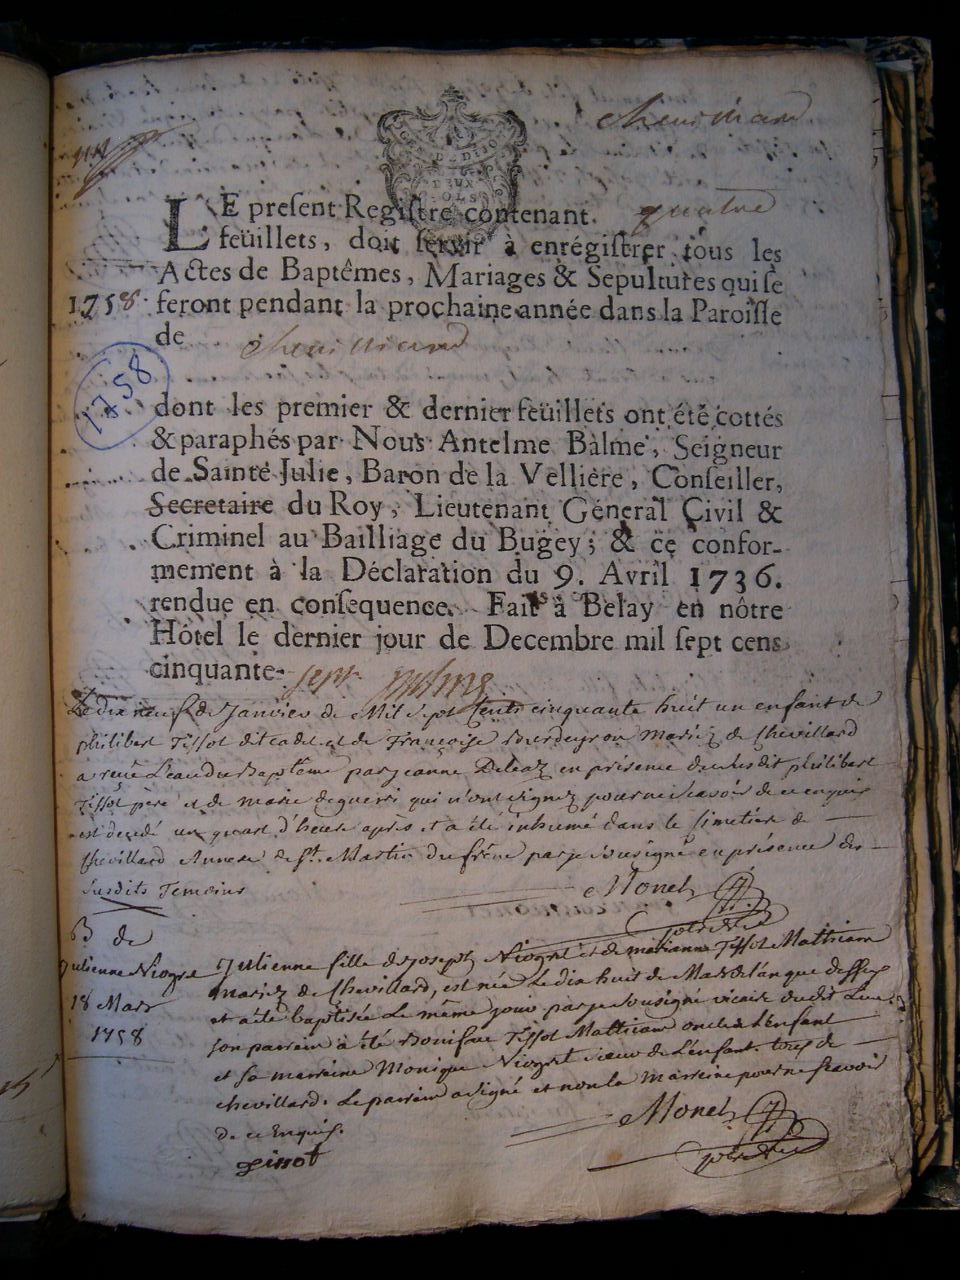 Chevillard
GEN. DE DIJON
DEUX
SOLS
LE preſent Regiſtre contenant quatre
feüillets, doit ſervir à enrégiſtrer tous les
Actes de Baptêmes, Mariages & Sepultures qui ſe
1758. feront pendant la prochaine année dans la Paroiſſe
de Chevillard
1758
dont les premier & dernier feüillets ont été cottés
& paraphés par Nous Antelme Balme, Seigneur
de Sainte Julie, Baron de la Velliere, Conſeiller,
Secretaire du Roy, Lieutenant Géneral Civil &
Criminel au Bailliage du Bugey; & ce confor-
mement à la Déclaration du 9. Avril 1736.
rendue en conſequence. Fait à Belay en nôtre
Hôtel le dernier jour de Decembre mil ſept cens
cinquante- sept
Le dix neuf de Janvier de Mil Sept Cents cinquante huit un enfant de
philibert Tissot dit cadet et de Françoise Mariez de Chevillard
a reçu L'eau du Baptême par Jeanne Deleaz en présence dudit philibert
Tissot père et de marie qui n'ont signez pour ne Scavoir de ce enquis
est decedé un quart d'heure après et a été inhumé dans le simetière de
Chevillard Annexe de St. Martin du frêne par je Sousigné en présence des
Susdits Temoins
Monet
B de
Julienne Niogret
18 Mars
1758
Julienne fille de Joseph Niogret et de marianne Tissot Mattriam
mariez de Chevillard, est née Le dix huit de Mars de l'an que dessus
et a été baptisée Le même jour par je Sousigné vicaire dudit Lieu
son parrain a été Boniface Tissot Mattriam oncle de L'enfant
et Sa marraine Monique Niogret sœur de L'enfant. tous de
chevillard. Le parrain a signé et non la marraine pour ne Scavoir
de ce Enquis.
Monet
Tissot